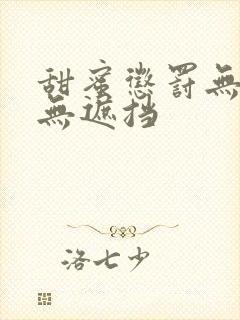 甜蜜懲罰無
無遮挡
洛七少